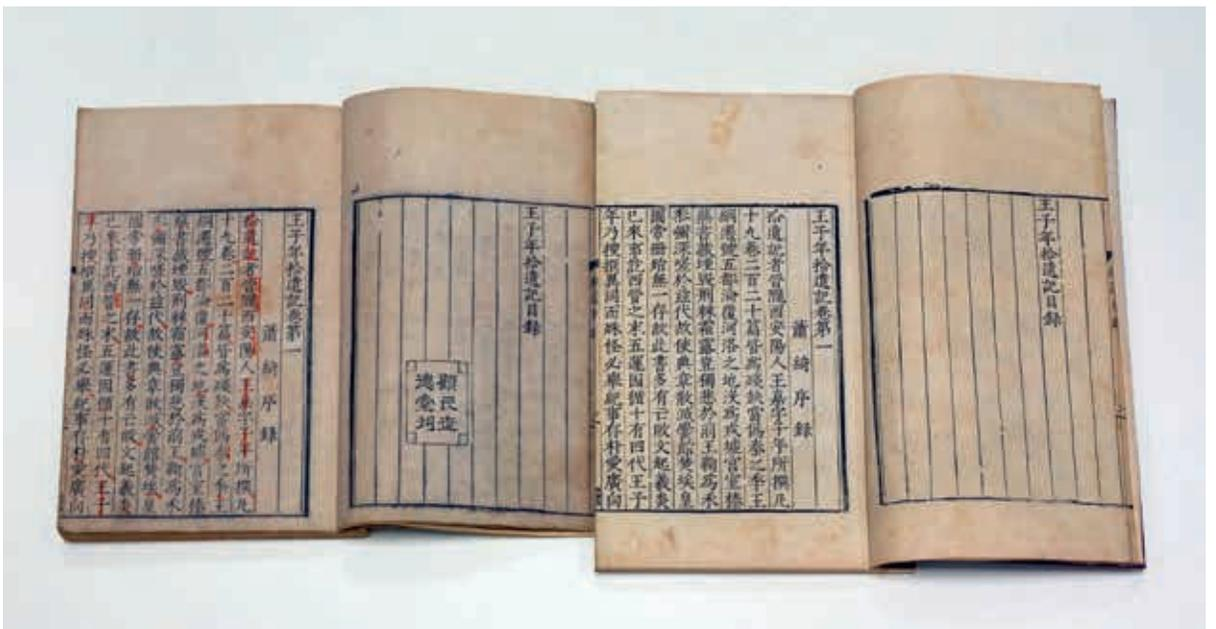 王子年拾遺記目錄
王子年拾遺記卷第一
蕭綺序錄
拾遺記者晉隴西安陽人王嘉字子年所撰凡
十九卷二百二十篇皆爲殘缺當僞秦之季王
綱遷號五都淪覆河洛之地没爲戎墟宮室榛
蕪書藏堙毀荆棘霜露豈獨悲於前王鞠爲禾
黍彌深嗟於兹代故使典章散滅黌館焚埃皇
圖帝册殆無一存故此書多有亡散文起羲炎
已來事訖西晉之末五運因循十有四代王子
年乃搜撰異同而殊怪必舉紀事存朴愛廣向
王子年拾遺記目錄
顧氏世
德堂刊
王子年拾遺記卷第一
蕭綺序錄
拾遺記者晉隴西安陽人王嘉字子年所撰凡
十九卷二百二十篇皆爲殘缺當僞秦之季王
綱遷號五都淪覆河洛之地没爲戎墟宮室榛
蕪書藏堙毀荆棘霜露豈獨悲於前王鞠爲禾
黍彌深嗟於兹代故使典章散滅黌館焚埃皇
圖帝册殆無一存故此書多有亡散文起羲炎
已來事訖西晉之末五運因循十有四代王子
年乃搜撰異同而殊怪必舉紀事存朴愛廣向